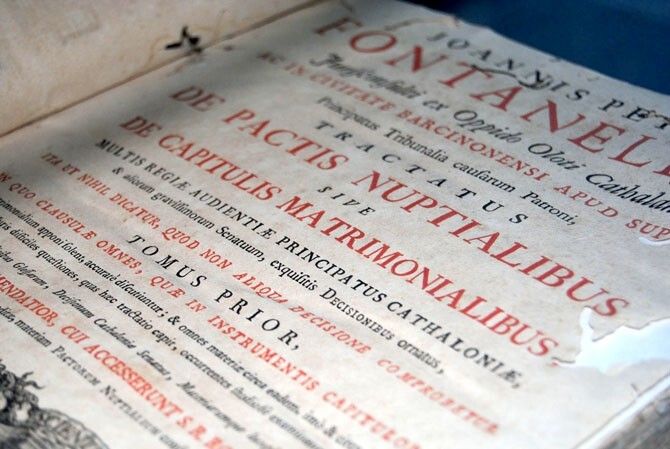 JOANNIS PET
FONTANELL
Jurisconsulti ex Oppido Oloti Cathallan
AC IN CIVITATE BARCINONENSI APUD SUP
Principatus Tribunalia causarum Patroni,
TRACTATUS
DE PACTIS NUPTIALIBUS
SIVE
DE CAPITULIS MATRIMONIALIBUS,
MULTIS REGIÆ AUDIENTIÆ PRINCIPATUS CATHALONIÆ,
& aliorum gravissimorum Senatuum, exquisitis Decisionibus ornatus,
ITA UT NIHIL DICATUR, QUOD NON ALIQUA DECISIONE COMPROBETUR.
TOMUS PRIOR,
IN QUO CLAUSULÆ OMNES, QUÆ IN INSTRUMENTIS CAPITULOR
apponi solent, accuratè discutiuntur; & omnes materiæ circa eandem
difficiles quæstiones, quas hæc tractatio capit, occurrentes
Decisionum Cathaloniæ Senatus,
materiam PACTORUM NUPTIALIUM
ENDATIOR, CUI ACCESSERUNT S. R. RO